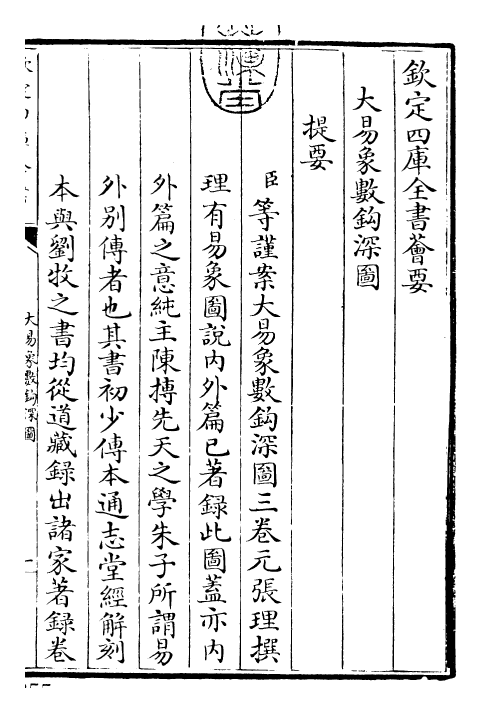 欽定四庫全書薈要
大易象數鈎深圖
提要
臣等謹案大易象數鈎深圖三卷元張理撰
理有易象圖說內外篇已著録此圖蓋亦内
外篇之意純主陳摶先天之學朱子所謂易
外別傳者也其書初少傳本通志堂經解刻
本與劉牧之書均從道藏録出諸家著録卷
大易象數鈎深圖